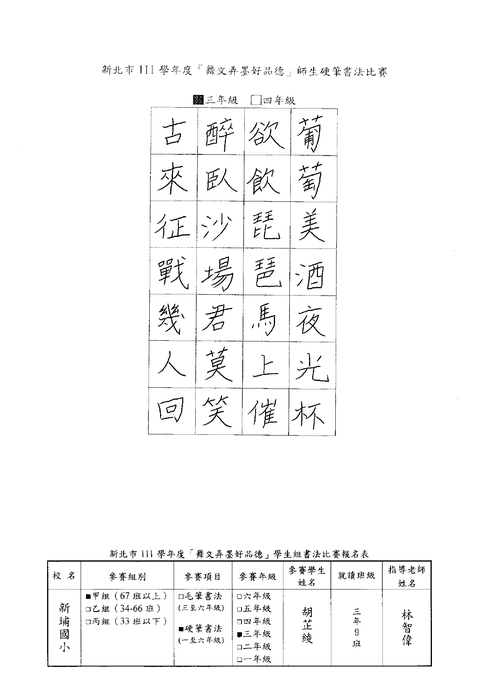 新北市 111 學年度「舞文弄墨好品德」師生硬筆書法比賽
■三年級 □四年級
葡萄美酒夜光杯
欲飲琵琶馬上催
醉臥沙場君莫笑
古來征戰幾人回
新北市 111 學年度「舞文弄墨好品德」學生組書法比賽報名表
校 名 參賽組別 參賽項目 參賽年級 參賽學生姓名 就讀班級 指導老師姓名
新埔國小
■甲組（67 班以上）
□乙組（34-66 班）
□丙組（33 班以下）
□毛筆書法
（三至六年級）
■硬筆書法
（一至六年級）
□六年級
□五年級
□四年級
■三年級
□二年級
□一年級
胡芷綾
三年9班
林智偉